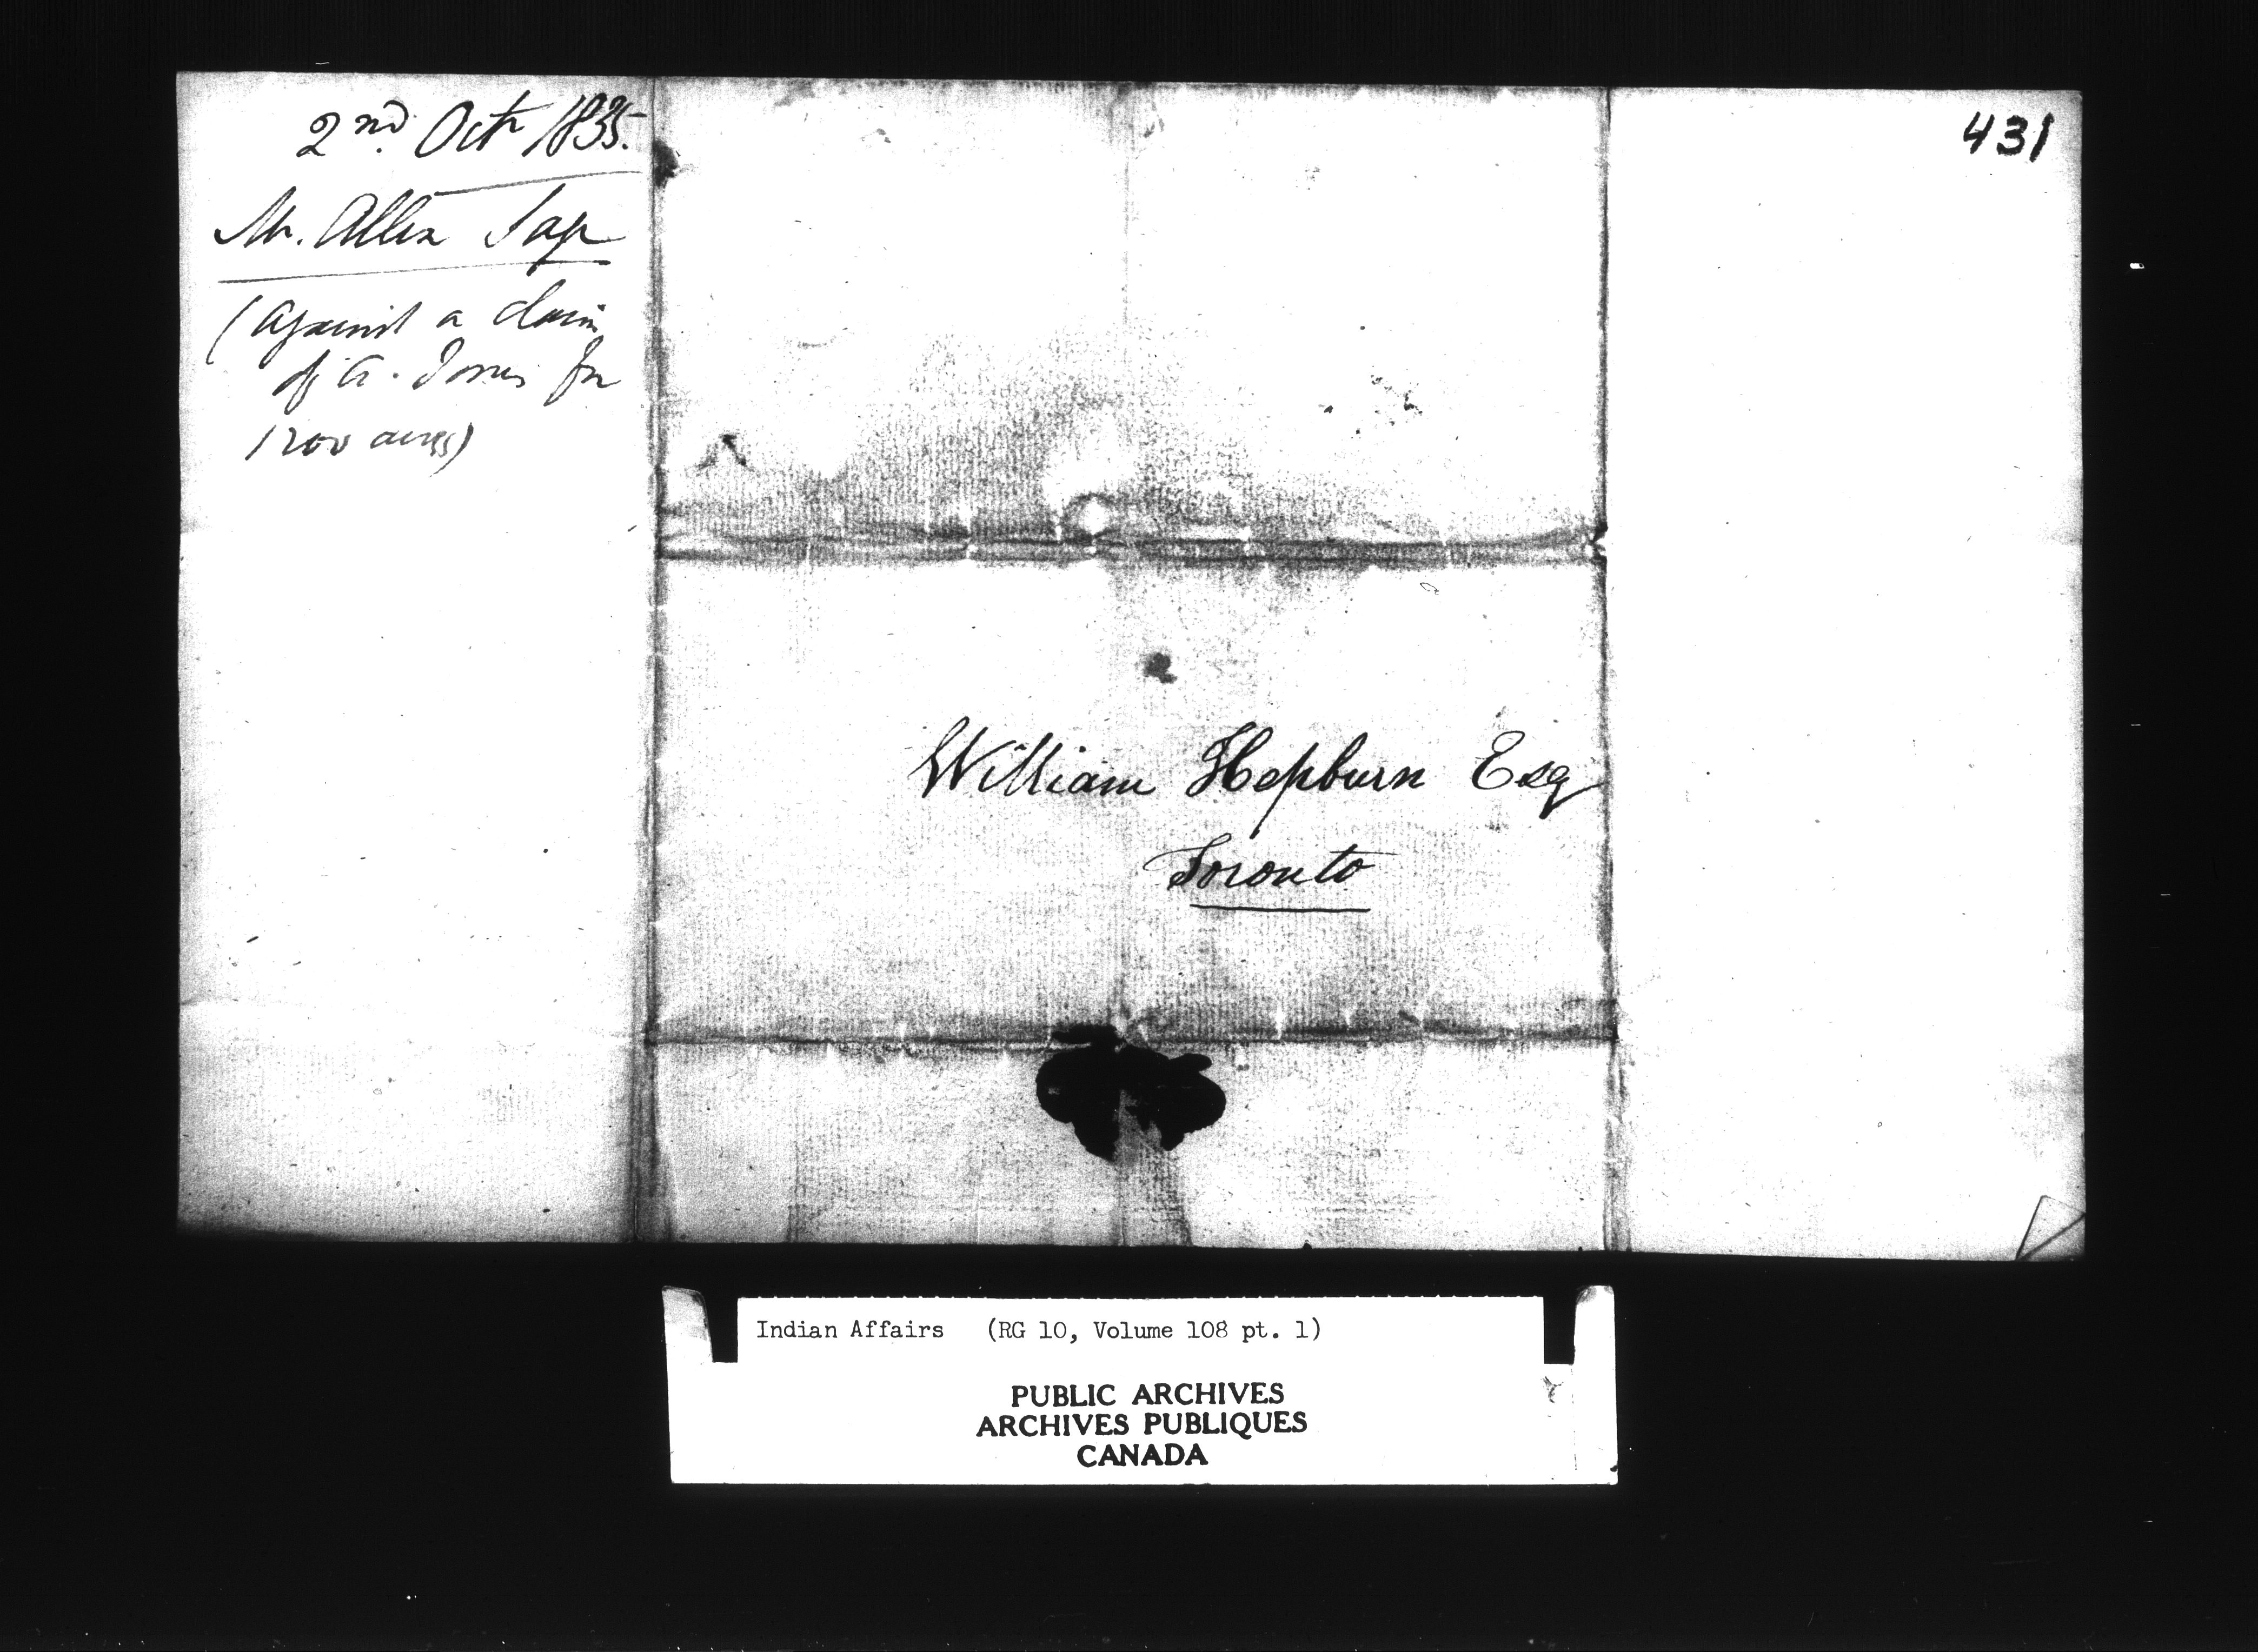 2nd. Octr 1835.
Mr. Allen
(against a claim
of A. Jones for
1200 acres)
431
William Hepburn Esq
Toronto
Indian Affairs (RG 10, Volume 108 pt. 1)
PUBLIC ARCHIVES
ARCHIVES PUBLIQUES
CANADA